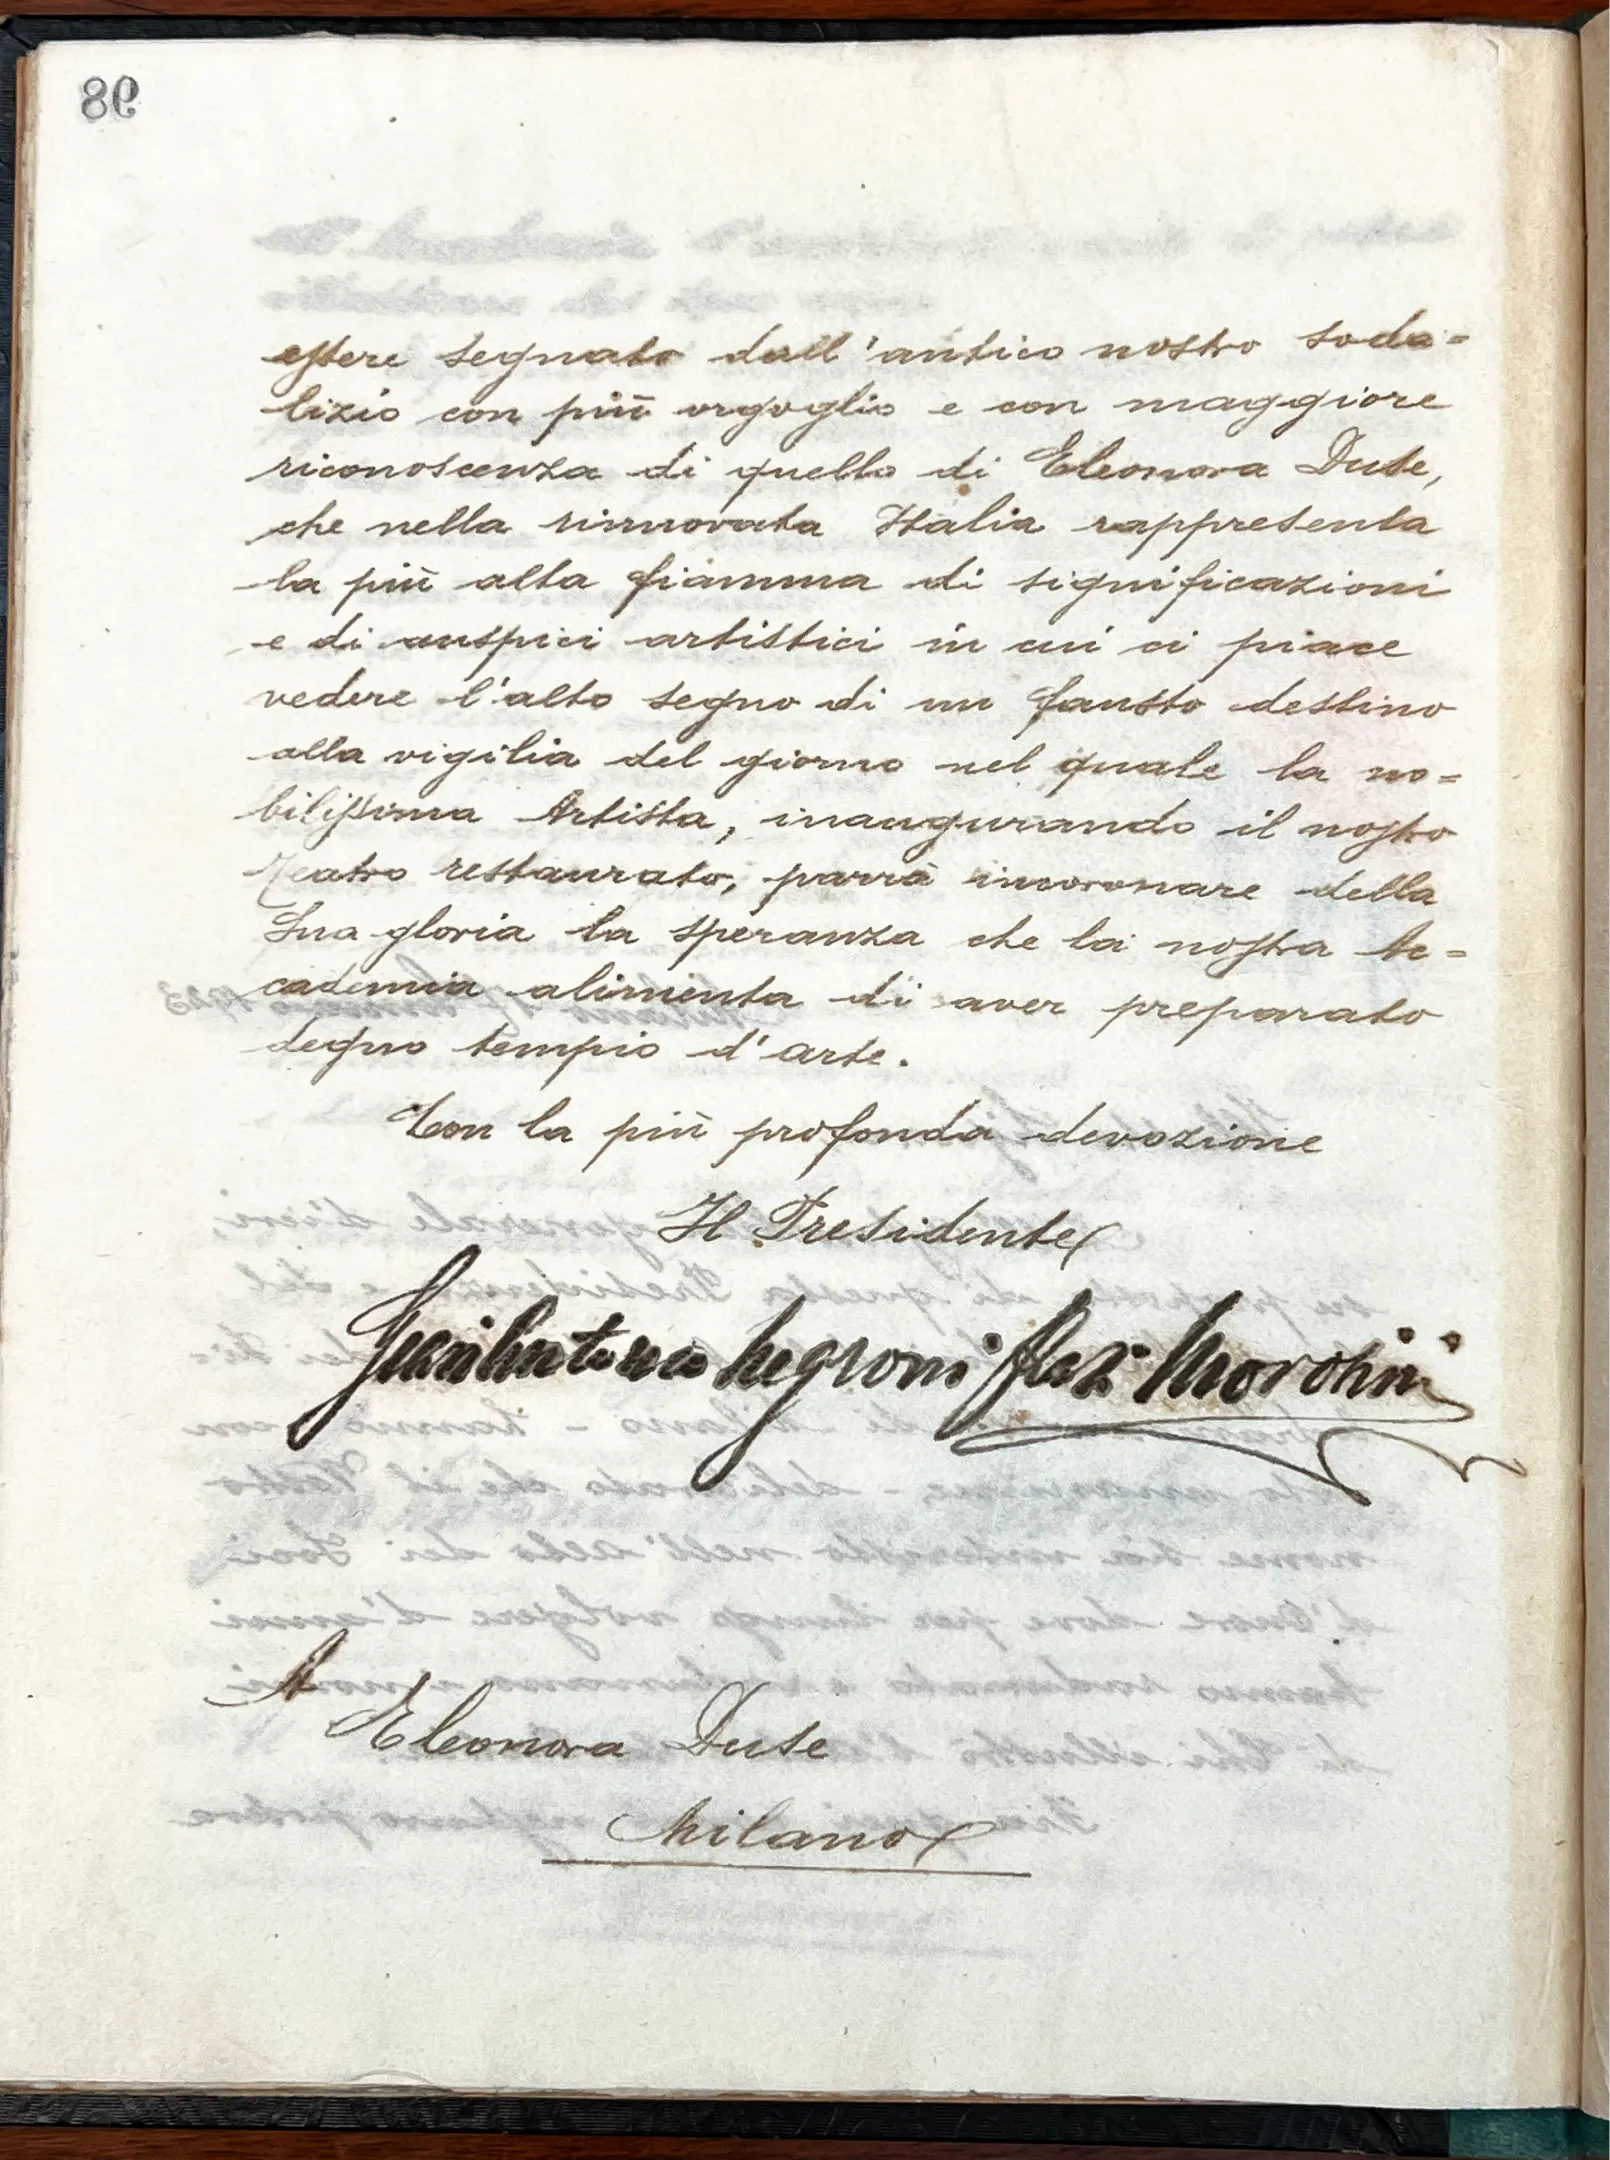 98
essere segnato dall'antico nostro soda=
lizio con più orgoglio e con maggiore
riconoscenza di quello di Eleonora Duse,
che nella rinnovata Italia rappresenta
la più alta fiamma di significazioni
e di auspici artistici in cui ci piace
vedere l'alto segno di un fausto destino
alla vigilia del giorno nel quale la no=
bilissima Artista, inaugurando il nostro
Teatro restaurato, parrà incoronare della
Sua gloria la speranza che la nostra Ac=
cademia alimenta di aver preparato
degno tempio d'arte.
Con la più profonda devozione
Il Presidente
Negroni Morosini
A
Eleonora Duse
Milano